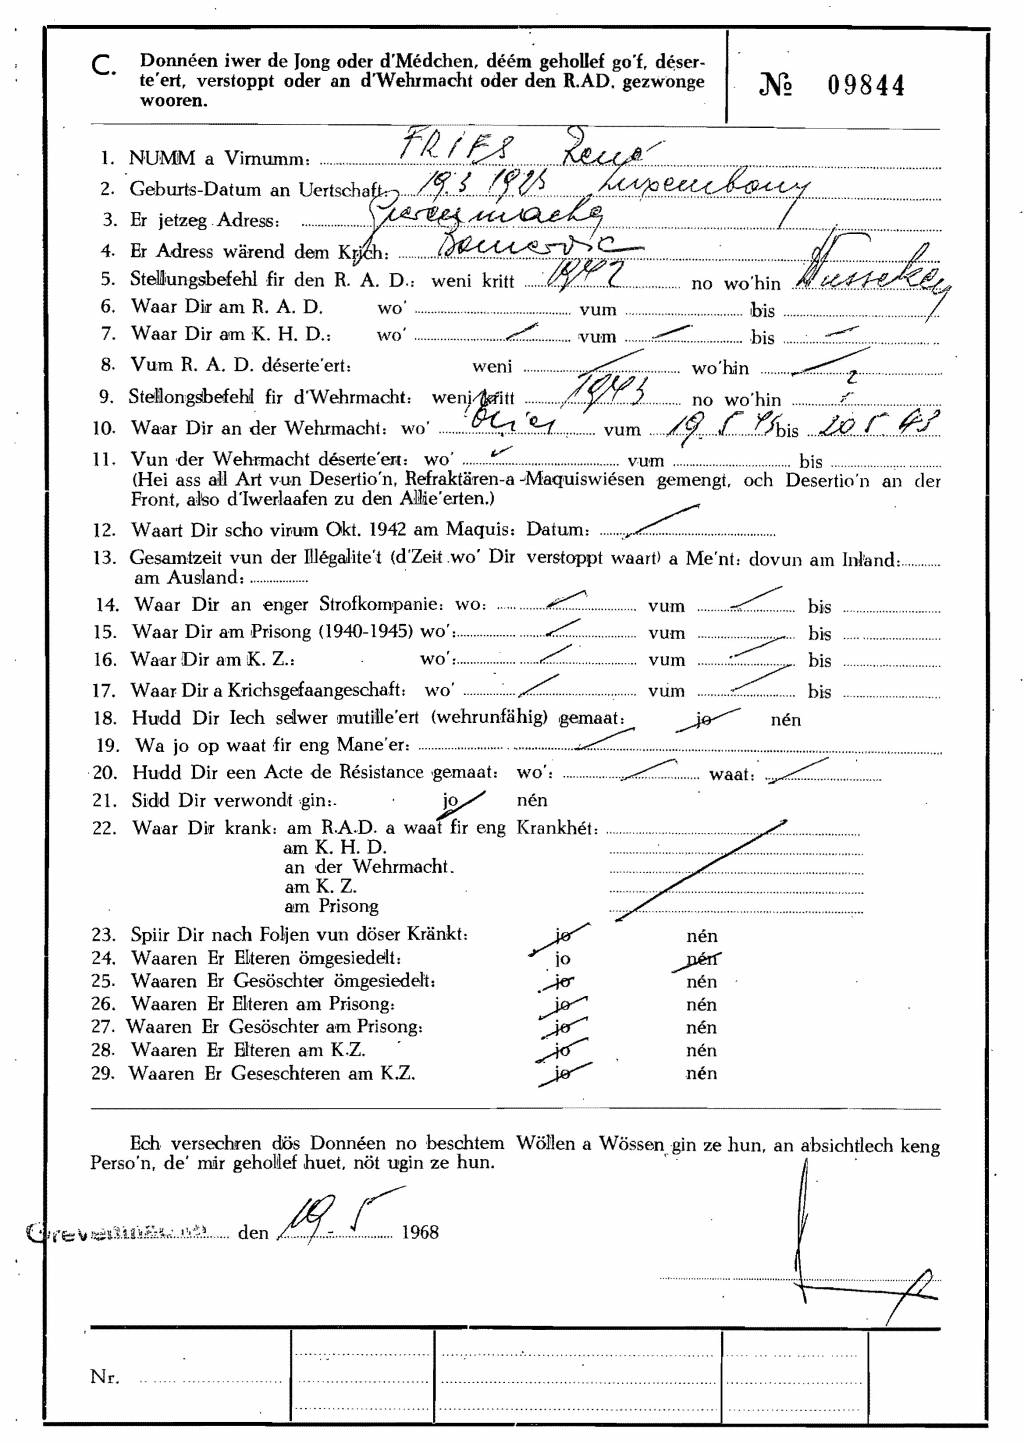 C. Donnéen iwer de Jong oder d'Médchen, déém gehollef go'f, déser-
te'ert, verstoppt oder an d'Wehrmacht oder den R.AD. gezwonge
wooren.
№ 09844
1. NUMM a Virnumm: FRIES René
2. Geburts-Datum an Uertschaft: 19.3 1923 Luxembourg
3. Er jetzeg Adress:
4. Er Adress wärend dem Krich:
5. Stellungsbefehl fir den R. A. D.: weni kritt 1942 no wo'hin
6. Waar Dir am R. A. D. wo' vum bis
7. Waar Dir am K. H. D.: wo' vum bis
8. Vum R. A. D. déserte'ert: weni wo'hin
9. Stellongsbefehl fir d'Wehrmacht: weni kritt 1943 no wo'hin ?
10. Waar Dir an der Wehrmacht: wo' vum 19. 5 43 bis 20 5 43
11. Vun der Wehrmacht déserte'ert: wo' vum bis
(Hei ass all Art vun Desertio'n, Refraktären-a -Maquiswiésen gemengt, och Desertio'n an der
Front, also d'Iwerlaafen zu den Allie'erten.)
12. Waart Dir scho virum Okt. 1942 am Maquis: Datum:
13. Gesamtzeit vun der Illégalite't (d'Zeit wo' Dir verstoppt waart) a Me'nt: dovun am Inland:
am Ausland:
14. Waar Dir an enger Strofkompanie: wo: vum bis
15. Waar Dir am Prisong (1940-1945) wo': vum bis
16. Waar Dir am K. Z.: wo': vum bis
17. Waar Dir a Krichsgefaangeschaft: wo' vum bis
18. Hudd Dir Iech selwer mutille'ert (wehrunfähig) gemaat: jo nén
19. Wa jo op waat fir eng Mane'er:
20. Hudd Dir een Acte de Résistance gemaat: wo': waat:
21. Sidd Dir verwondt gin: jo nén
22. Waar Dir krank: am R.A.D. a waat fir eng Krankhét:
am K. H. D.
an der Wehrmacht.
am K. Z.
am Prisong
23. Spiir Dir nach Foljen vun döser Kränkt: jo nén
24. Waaren Er Elteren ömgesiedelt: jo nén
25. Waaren Er Gesöschter ömgesiedelt: jo nén
26. Waaren Er Elteren am Prisong: jo nén
27. Waaren Er Gesöschter am Prisong: jo nén
28. Waaren Er Elteren am K.Z. jo nén
29. Waaren Er Geseschteren am K.Z. jo nén
Ech versechren dös Donnéen no beschtem Wöllen a Wössen gin ze hun, an absichtlech keng
Perso'n, de' mir gehollef huet, nöt ugin ze hun.
den 19. 5 1968
Nr.